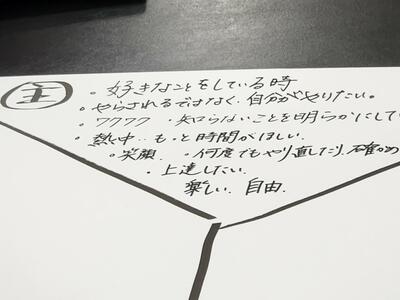 主
・好きなことをしている時
・やらされるではなく、自分がやりたい。
・ワクワク ・知らないことを明らかにして
・熱中‥もっと時間がほしい
・笑顔 ・何度でもやり直したり、確かめ
・上達したい
楽しい 自由